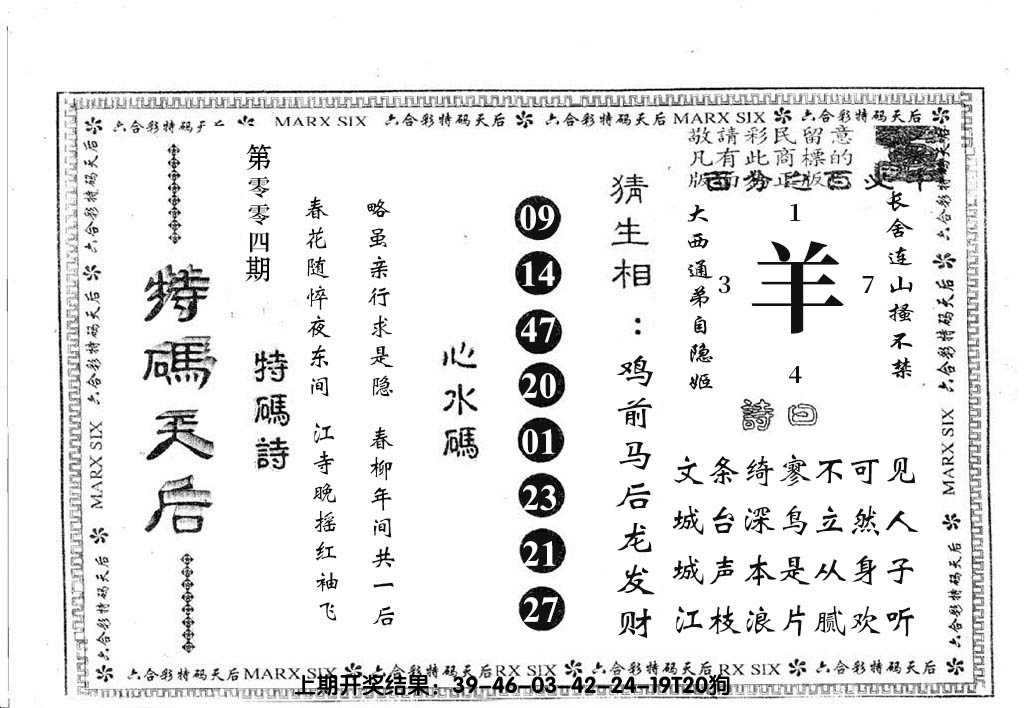 六合彩特码天后 MARX SIX 六合彩特码天后 六合彩特码天后 MARX SIX 六合彩特码天后
六合彩特码天后 六合彩特码天后 MARX SIX 六合彩特码天后
特碼天后
第零零四期
特碼詩
春花随悴夜东间 江寺晚摇红袖飞
略虽亲行求是隐 春柳年间共一后
心水碼
09
14
47
20
01
23
21
27
猜生相：鸡前马后龙发财
敬請彩民留意
凡有此商標的
大西通弟自隐姬
1
3
羊
7
4
长舍连山搔不禁
詩曰
文条绮寥不可见
城台深鸟立然人
城声本是从身子
江枝浪片腻欢听
六合彩特码天后 MARX SIX 六合彩特码天后 六合彩特码天后
六合彩特码天后MARX SIX 六合彩特码天后RX SIX 六合彩特码天后RX SIX 六合彩特码天后
上期开奖结果：39-46-03-42-24-19T20狗